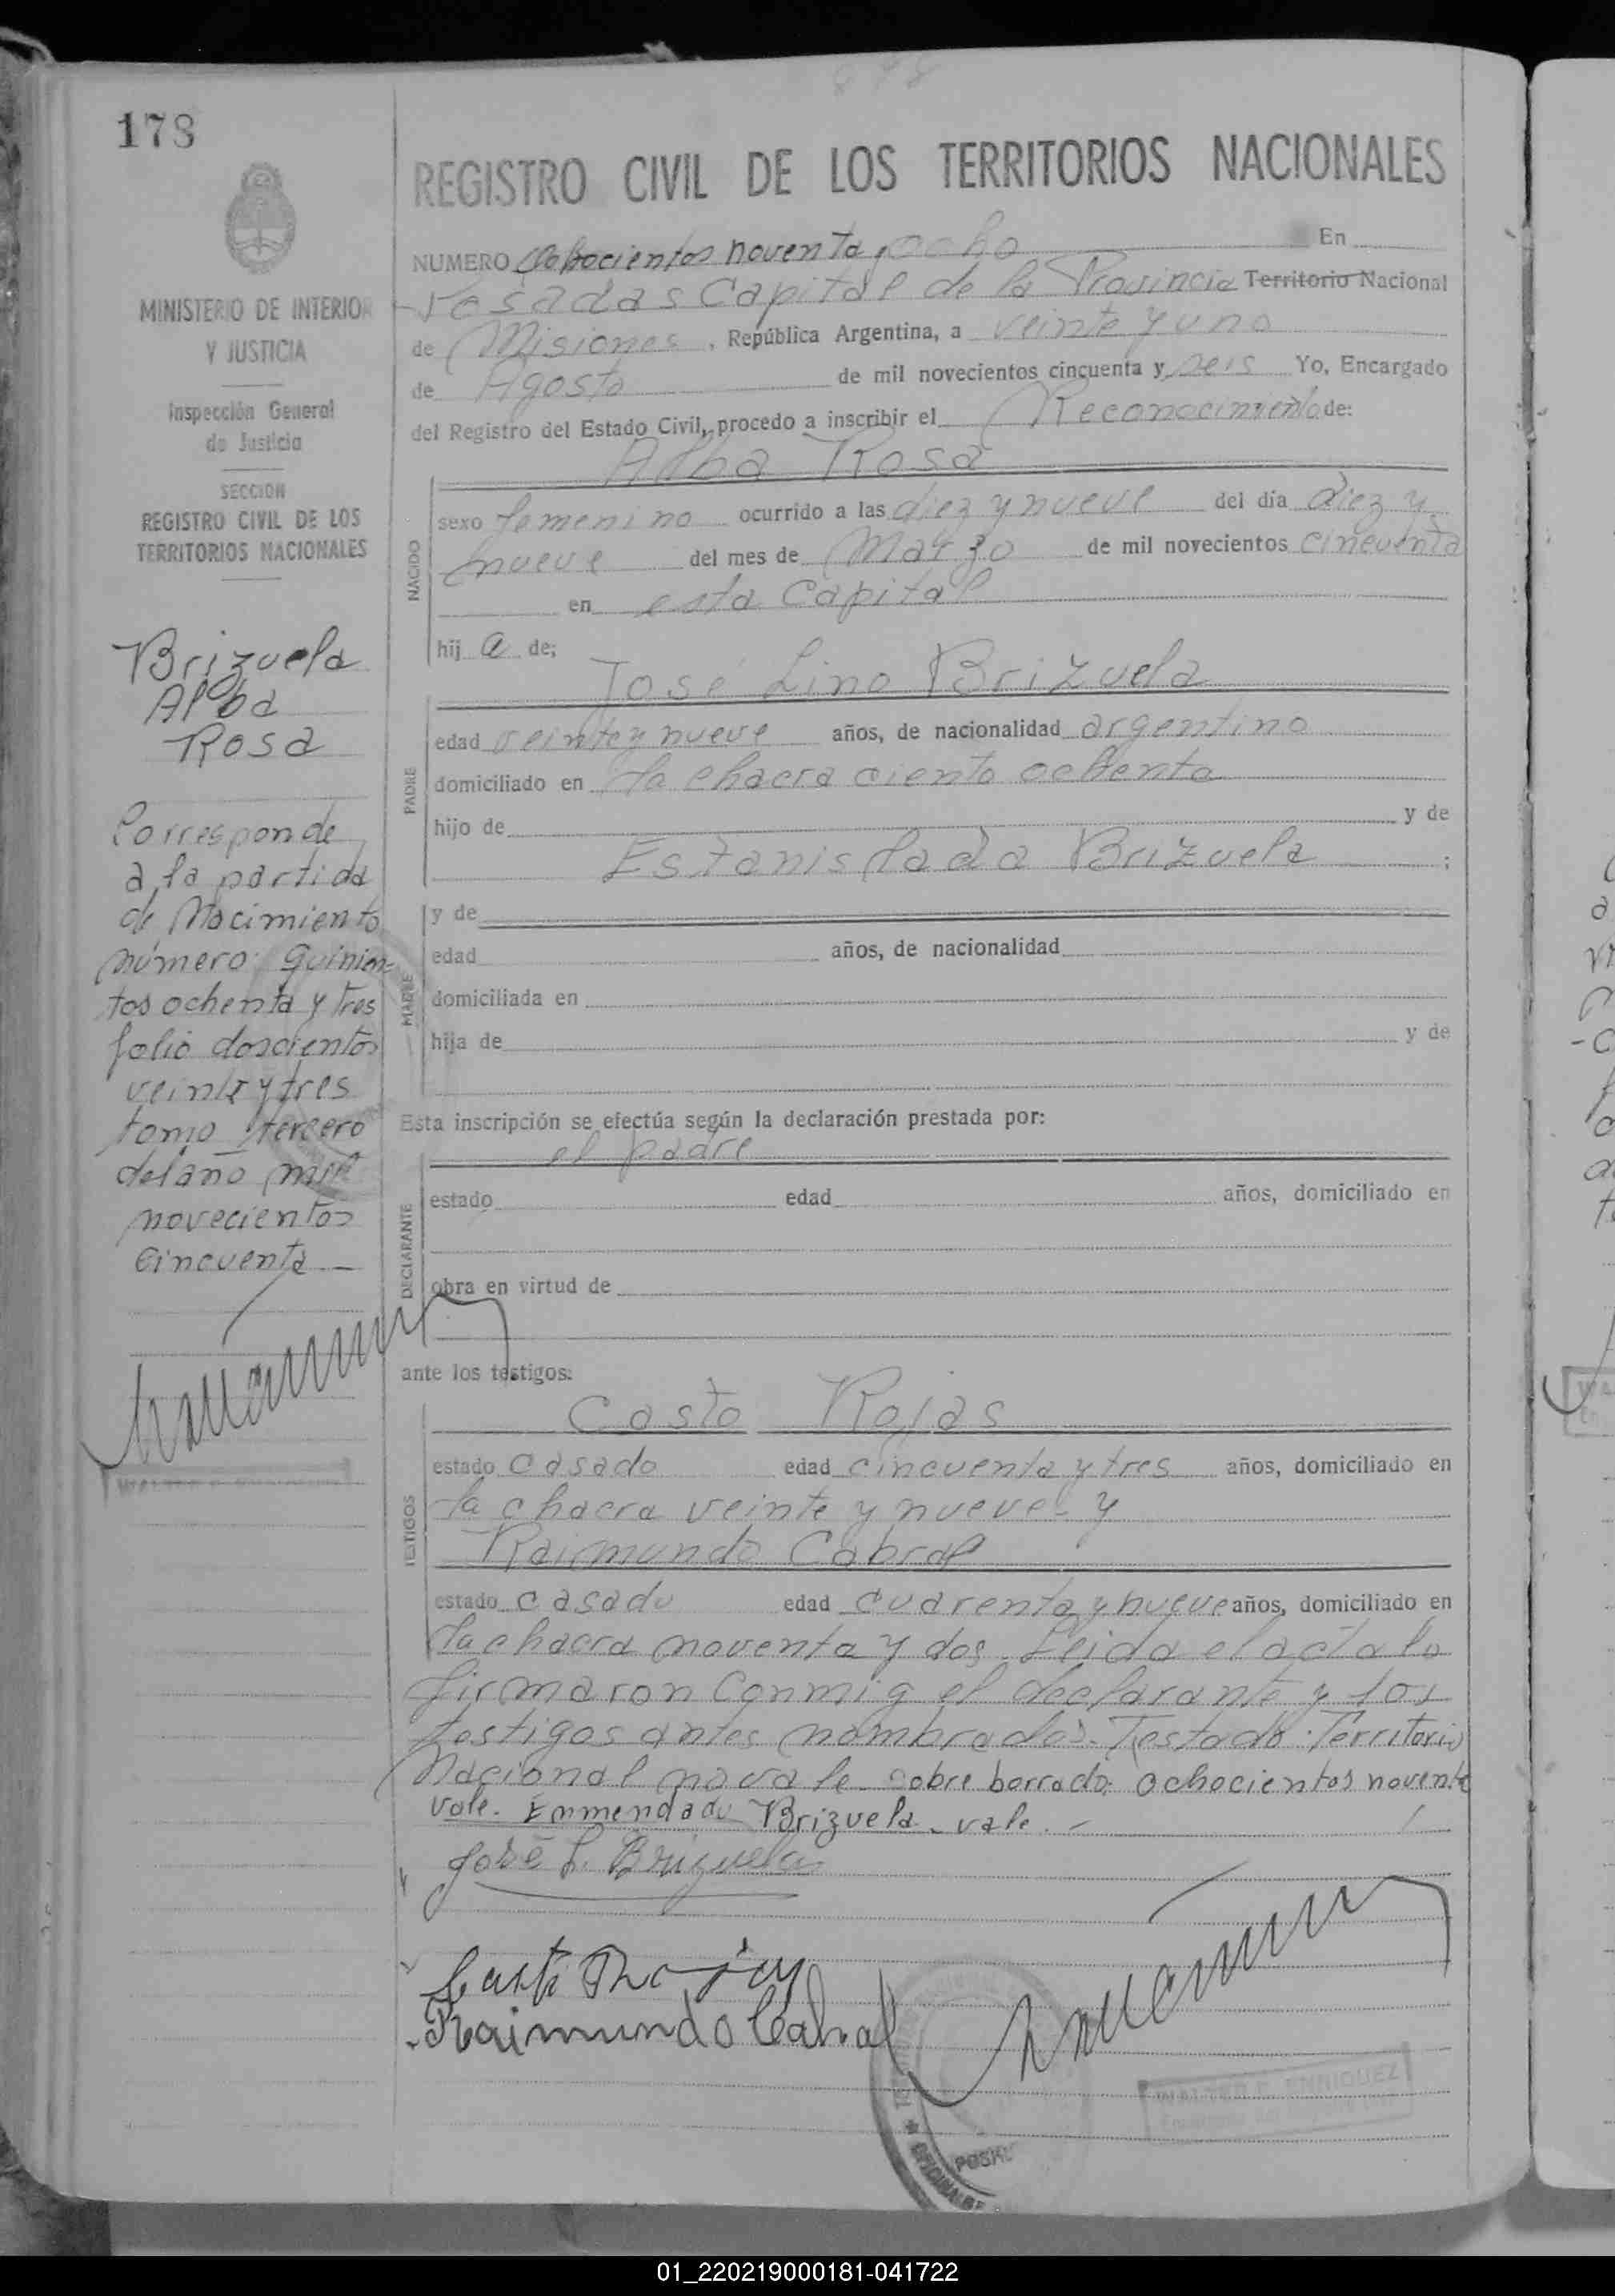 898
178
REGISTRO CIVIL DE LOS TERRITORIOS NACIONALES
MINISTERIO DE INTERIOR
Y JUSTICIA
Inspección General
de Justicia
SECCION
REGISTRO CIVIL DE LOS
TERRITORIOS NACIONALES
Brizuela
Alba
Rosa
Corresponde
a la partida
de Nacimiento
número: quinien-
tos ochenta y tres
folio doscientos
veinte y tres
tomo tercero
del año mil
novecientos
cincuenta —
NUMERO Ochocientos noventa y ocho En
Posadas Capital de la Provincia Territorio Nacional
de Misiones, República Argentina, a veinte y uno
de Agosto de mil novecientos cincuenta y seis Yo, Encargado
del Registro del Estado Civil, procedo a inscribir el Reconocimiento de:
Alba Rosa
NACIDO
sexo femenino ocurrido a las diez y nueve del día diez y
nueve del mes de Marzo de mil novecientos cincuenta
en esta Capital
hija de;
José Lino Brizuela
PADRE
edad veinte y nueve años, de nacionalidad argentino
domiciliado en la chacra ciento ochenta
hijo de y de
Estanislada Brizuela ;
MADRE
y de
edad años, de nacionalidad
domiciliada en
hija de y de
Esta inscripción se efectúa según la declaración prestada por:
el padre
DECLARANTE
estado edad años, domiciliado en
obra en virtud de
ante los testigos:
Casto Rojas
TESTIGOS
estado casado edad cincuenta y tres años, domiciliado en
la chacra veinte y nueve - y
Raimundo Cabral
estado casado edad cuarenta y nueve años, domiciliado en
la chacra noventa y dos. Leida el acta la
firmaron conmig el declarante y los
testigos antes nombrados. Testado: Territorio
Nacional no vale - sobre borrado: ochocientos noventa
vale. Enmendado Brizuela - vale. -
José L. Brizuela
Casto Rojas
Raimundo Cabral
WALTER E. ENRIQUEZ
01_220219000181-041722